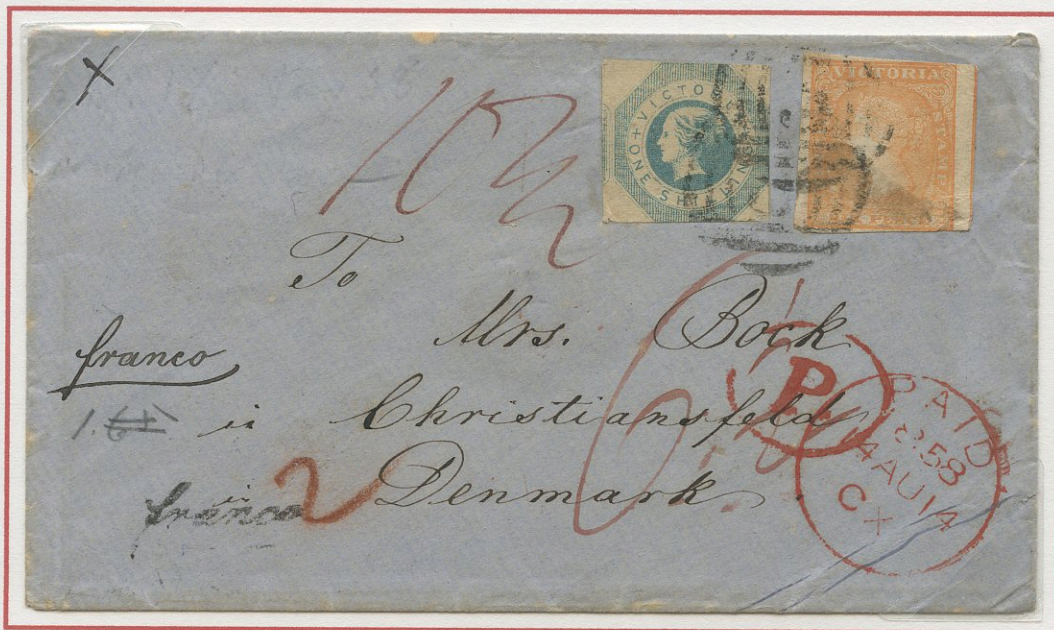 X
10½
VICTORIA
ONE SHILLING
VICTORIA
STAMP
To
Mrs. Bock
franco
in Christiansfeld
Denmark
franco
2
6
P.
PAID
4 AU 14
58
CX